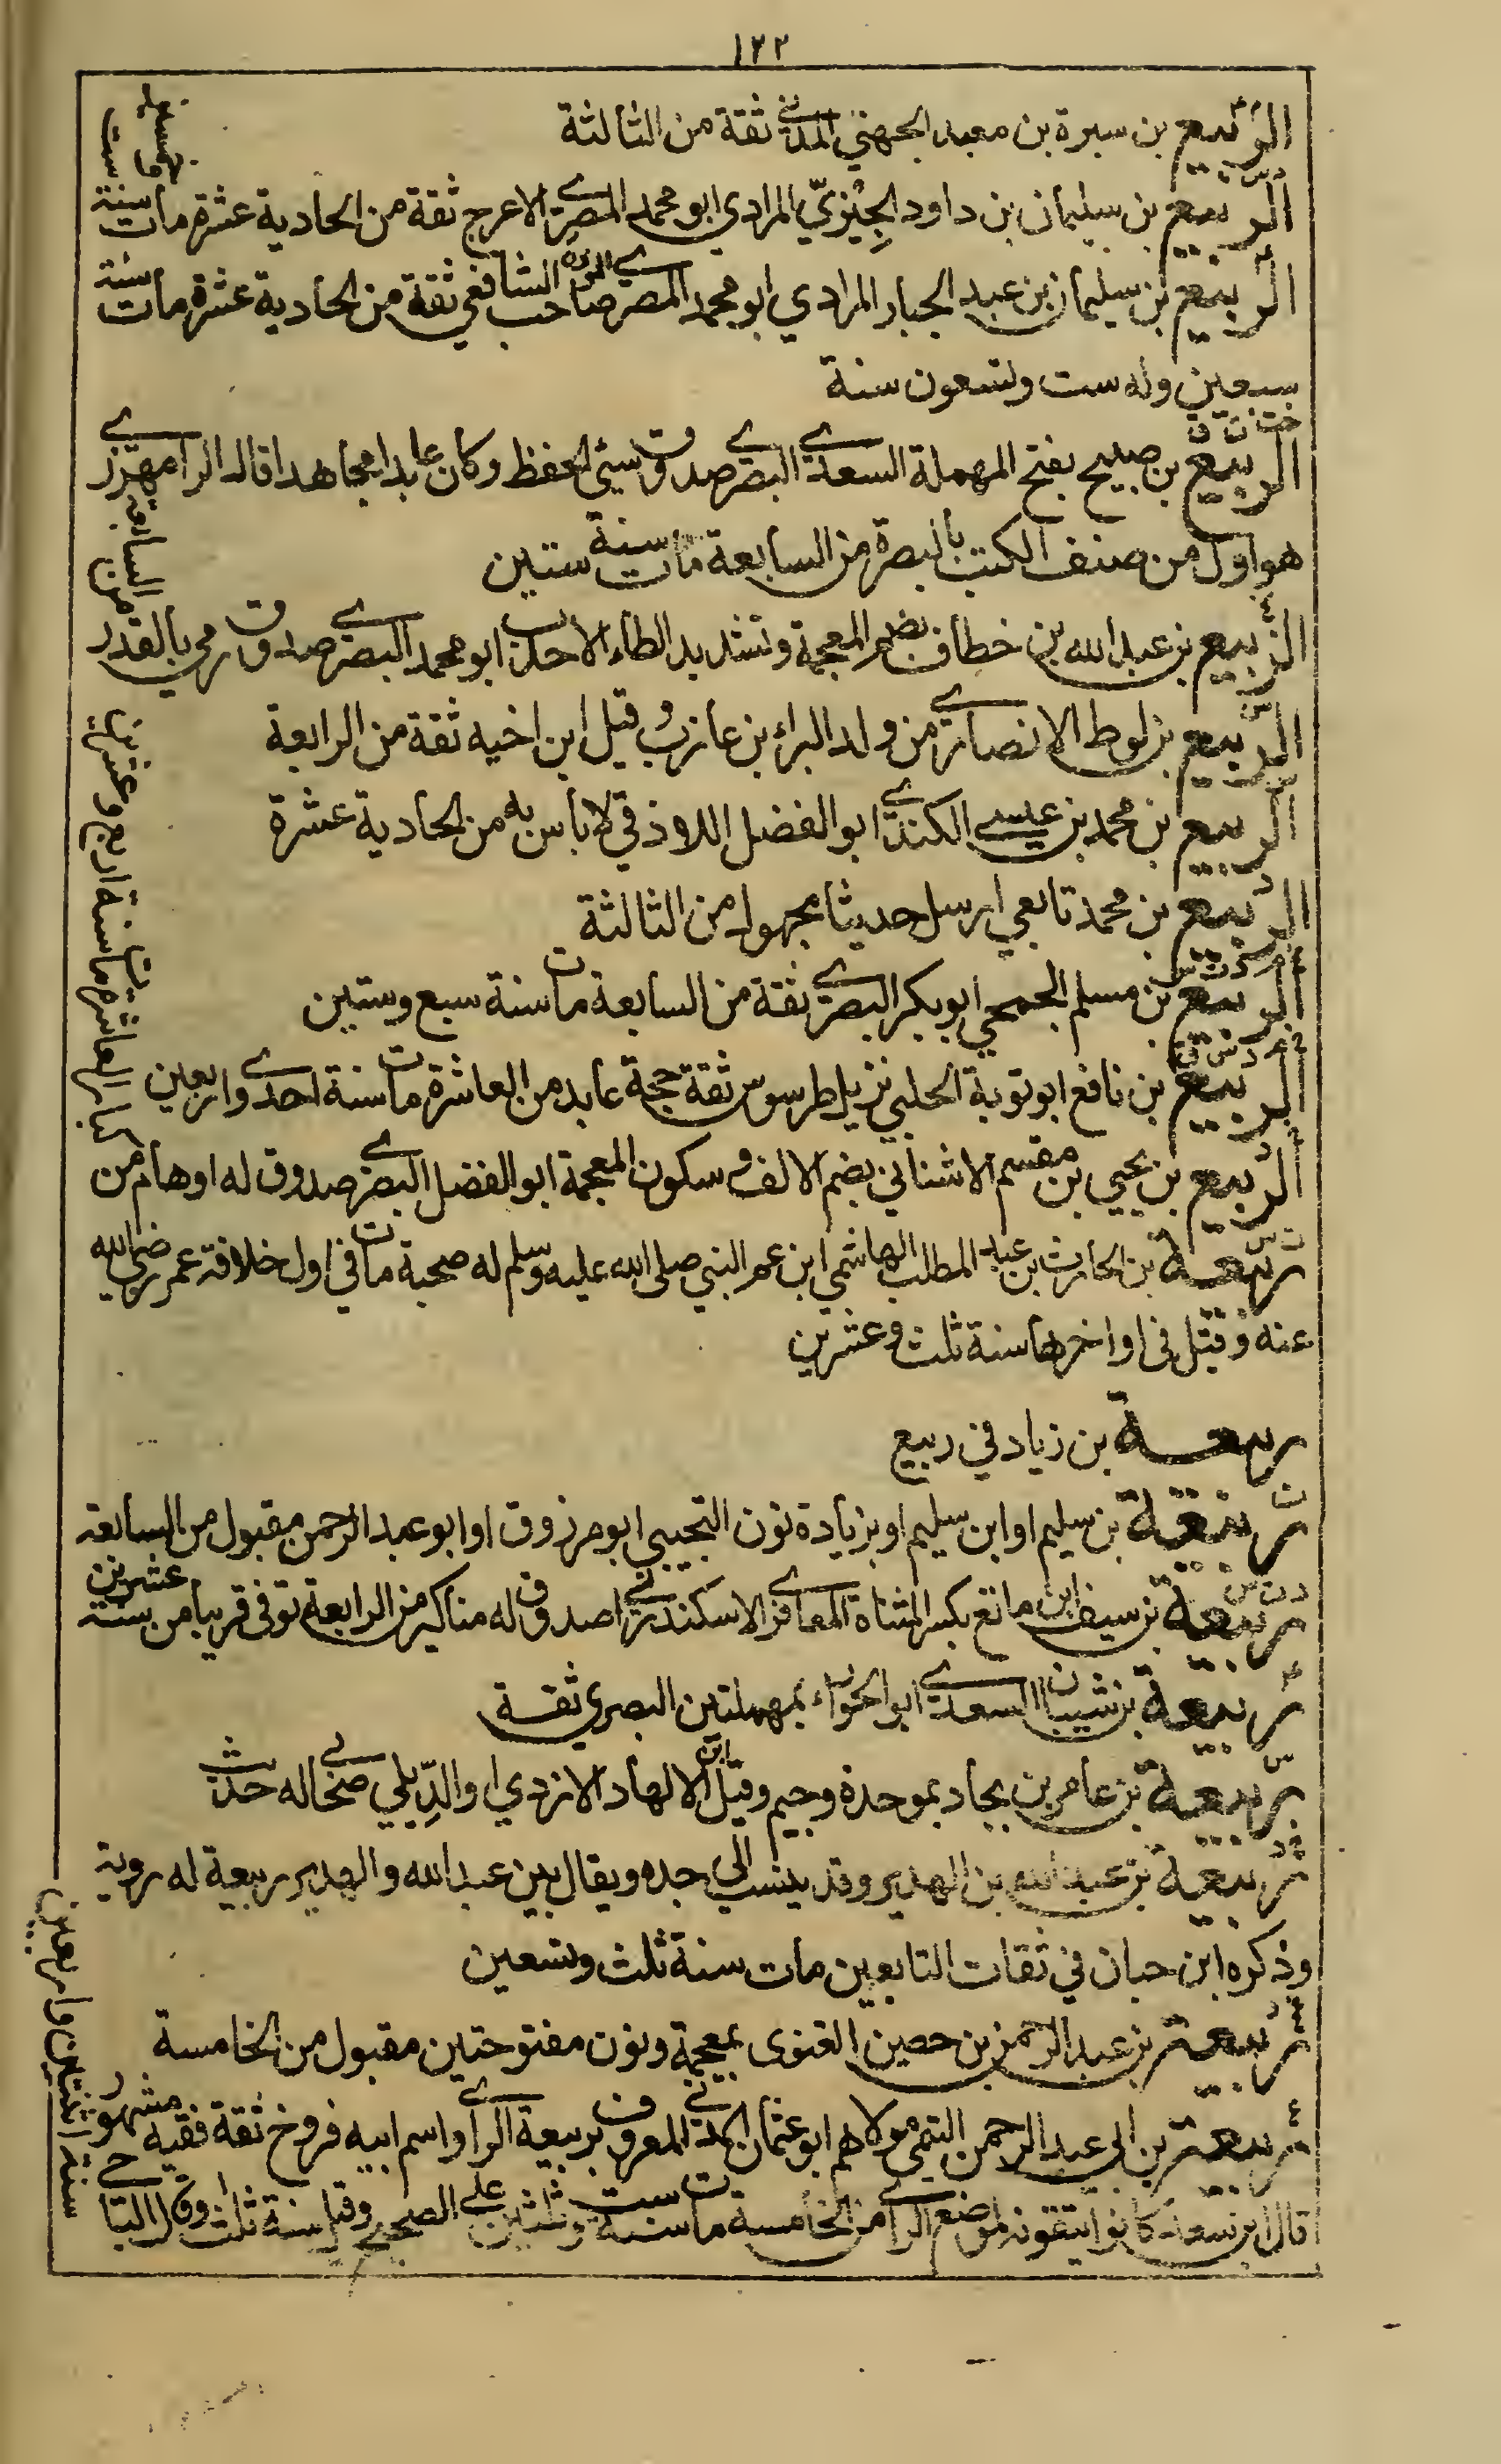 ١٢٢
الربيع بن سبرة بن معبد الجهني المدني ثقة من الثالثة
الربيع بن سليمان بن داود الجيزيّ المرادي ابو محمد المصري الاعرج ثقة من الحادية عشرة مات سنة
ست وخمسين
الربيع بن سليمان بن عبد الجبار المرادي ابو محمد المصري المؤذن صاحب الشافعي ثقة من الحادية عشرة مات سنة
سبعين وله ست وتسعون سنة
خت ت ق
الربيع بن صبيح بفتح المهملة السعدي البصري صدوق سيئ الحفظ وكان عابدا مجاهدا قال الرامهرمزي
هو اول من صنف الكتب بالبصرة من السابعة مات سنة ستين
الربيع بن عبد الله بن خطاف بضم المعجمة وتشديد الطاء الاحدب ابو محمد البصري صدوق رمي بالقدر
من السابعة
الربيع بن لوط الانصاري من ولد البراء بن عازب وقيل ابن اخيه ثقة من الرابعة
الربيع بن محمد بن عيسى الكندي ابو الفضل اللاذقي لا بأس به من الحادية عشرة
الربيع بن محمد تابعي ارسل حديثا مجهول من الثالثة
الربيع بن مسلم الجمحي ابو بكر البصري ثقة من السابعة مات سنة سبع وستين
خ م د س ق
الربيع بن نافع ابو توبة الحلبي نزيل طرسوس ثقة حجة عابد من العاشرة مات سنة احدى واربعين
الربيع بن يحيى بن مقسم الاشناني بضم الالف وسكون المعجمة ابو الفضل البصري صدوق له اوهام من
كبار العاشرة مات سنة اربع وعشرين
ت س
ربيعة بن الحارث بن عبد المطلب الهاشمي ابن عم النبي صلى الله عليه وسلم له صحبة مات في اول خلافة عمر رضي الله
عنه وقيل في اواخرها سنة ثلث وعشرين
ربيعة بن زياد في ربيع
ت
ربيعة بن سليم او ابن سليم او بزيادة نون التجيبي ابو مرزوق او ابو عبد الرحمن مقبول من السابعة
د ت س
ربيعة بن سيف ابن ماتع بكسر المثناة المعافري الاسكندراني صدوق له مناكير من الرابعة توفي قريبا من سنة عشرين
ربيعة بن شيبان السعدي ابو الحوراء بمهملتين البصري ثقة
س
ربيعة بن عامر بن بجاد بموحدة وجيم وقيل ابن الهاد الازدي او الدِّيلي صحابي له حديث
خ د
ربيعة بن عبد الله بن الهدير وقد ينسب الى جده ويقال بين عبد الله والهدير ربيعة له روية
وذكره ابن حبان في ثقات التابعين مات سنة ثلث وتسعين
ربيعة بن عبد الرحمن بن حصين الغنوى بمعجمة ونون مفتوحتين مقبول من الخامسة
ع
ربيعة بن ابي عبد الرحمن التيمي مولاهم ابو عثمان المدني المعروف بربيعة الرأي واسم ابيه فروخ ثقة فقيه مشهور
قال ابن سعد كانوا يتقونه لموضع الرأي من الخامسة مات سنة ست وثلثين على الصحيح وقيل سنة ثلث وقال الباجي
سنة اثنتين واربعين